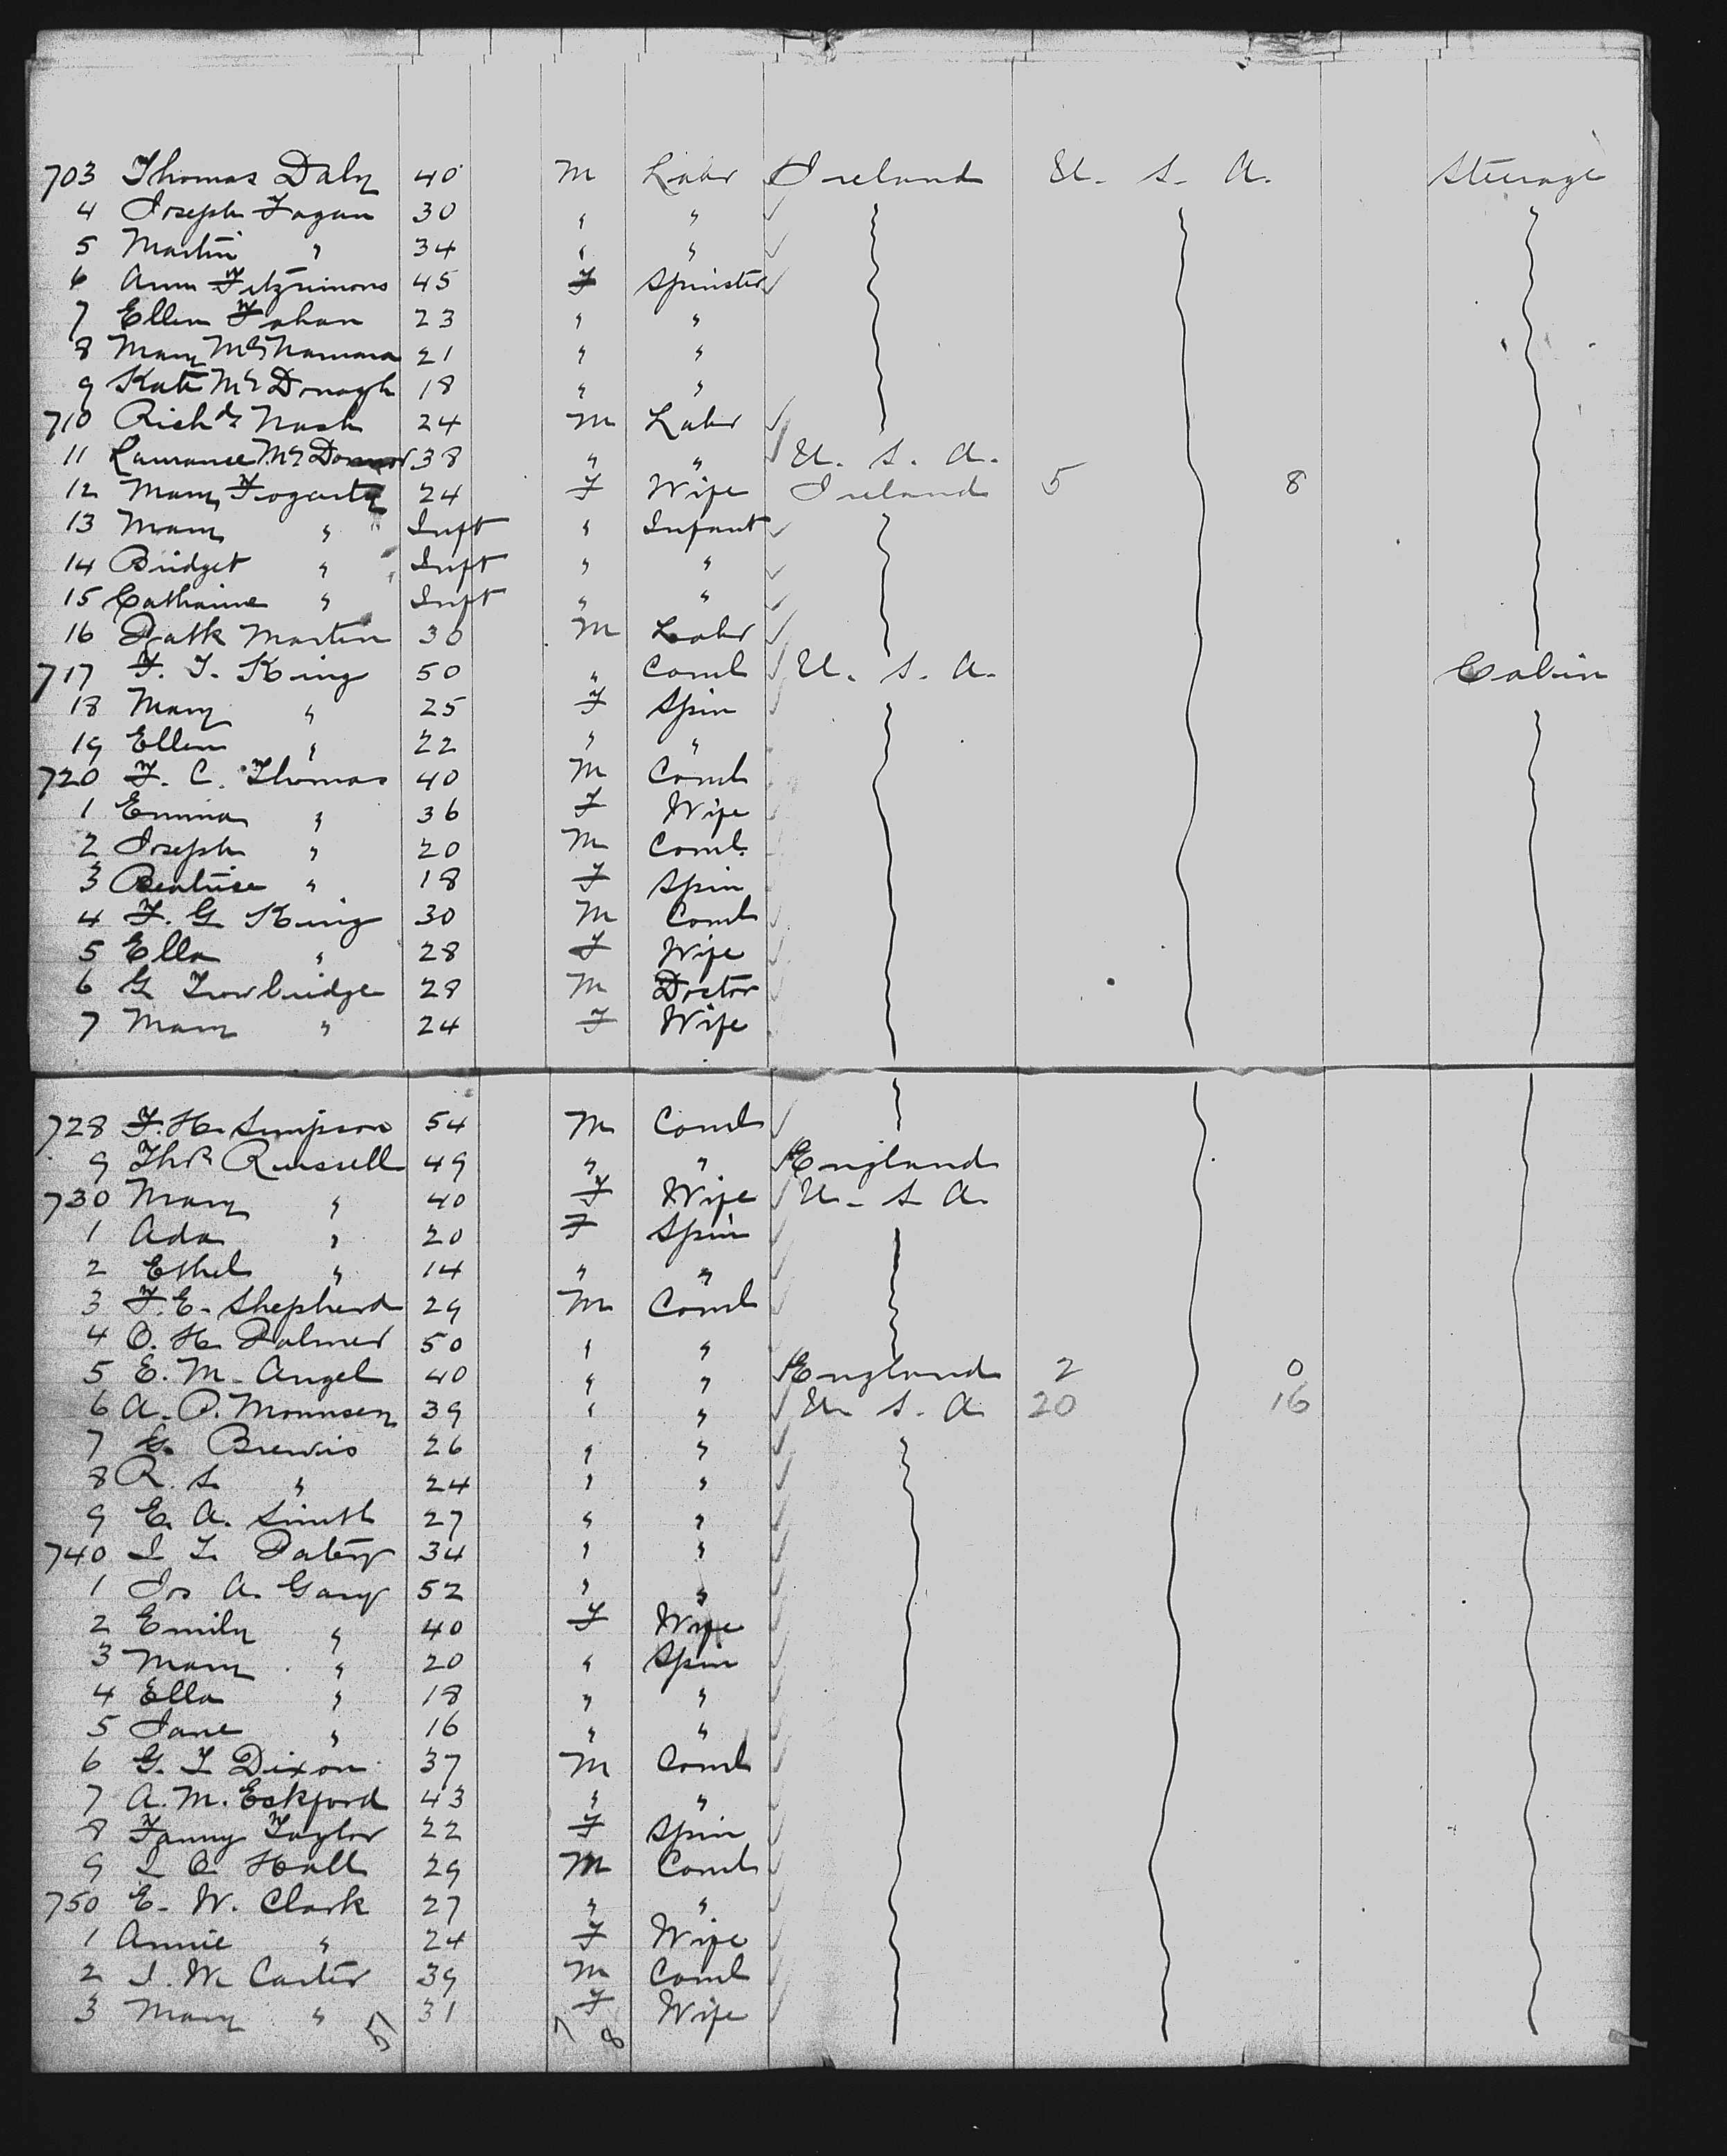 703 Thomas Daly 40 M Labr Ireland U. S. A. Steerage
4 Joseph Fagan 30 " "
5 Martin " 34 " "
6 Ann Fitzsimons 45 F Spinster
7 Ellen Fahan 23 " "
8 Mary McNamara 21 " "
9 Kate McDonagh 18 " "
710 Richd Nash 24 M Labr
11 Laurance 38 " " U. S. A.
12 Mary Fogarty 24 F Wife Ireland 5 8
13 Mary " Inft " Infant
14 Bridget " Inft " "
15 Catharine " Inft " "
16 Patk Martin 30 M Labr
717 F. T. King 50 " Coml U. S. A. Cabin
18 Mary " 25 F Spin
19 Ellen " 22 " "
720 F. C. Thomas 40 M Coml
1 Emma " 36 F Wife
2 Joseph " 20 M Coml
3 Beatrise " 18 F Spin
4 F. G. King 30 M Coml
5 Ella " 28 F Wife
6 G Trowbridge 28 M Doctor
7 Mary " 24 F Wife
728 F. H. Simpson 54 M Coml
9 Thos Russell 49 " " England
730 Mary " 40 F Wife U. S. A.
1 Ada " 20 F Spin
2 Ethel " 14 " "
3 F. E. Shepherd 29 M Coml
4 O. H. Palmer 50 " "
5 E. M. Angel 40 " " England 2 0
6 A. P. Mommsen 39 " " U. S. A 20 16
7 G. Brewis 26 " "
8 R. S. " 24 " "
9 E. A. Smith 27 " "
740 34 " "
1 Jos A. Gary 52 " "
2 Emily " 40 F Wife
3 Mary " 20 " Spin
4 Ella " 18 " "
5 Jane " 16 " "
6 G. T. Dixon 37 M Coml
7 A. M. Eckford 43 " "
8 Fanny Taylor 22 F Spin
9 Hall 29 M Coml
750 E. W. Clark 27 " "
1 Annie " 24 F Wife
2 J. W. Carter 39 M Coml
3 Mary " 31 F Wife
51 7 8